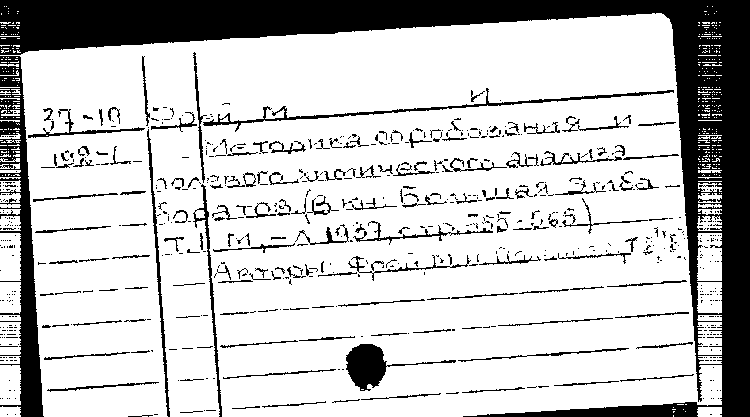 37-10 Фрей, М И
192-1 Методика опробования и
полевого химического анализа
боратов. (В кн: Большая Эмба
Т.I М,-Л 1937, стр.555-568)
Авторы: Фрей, М.И.